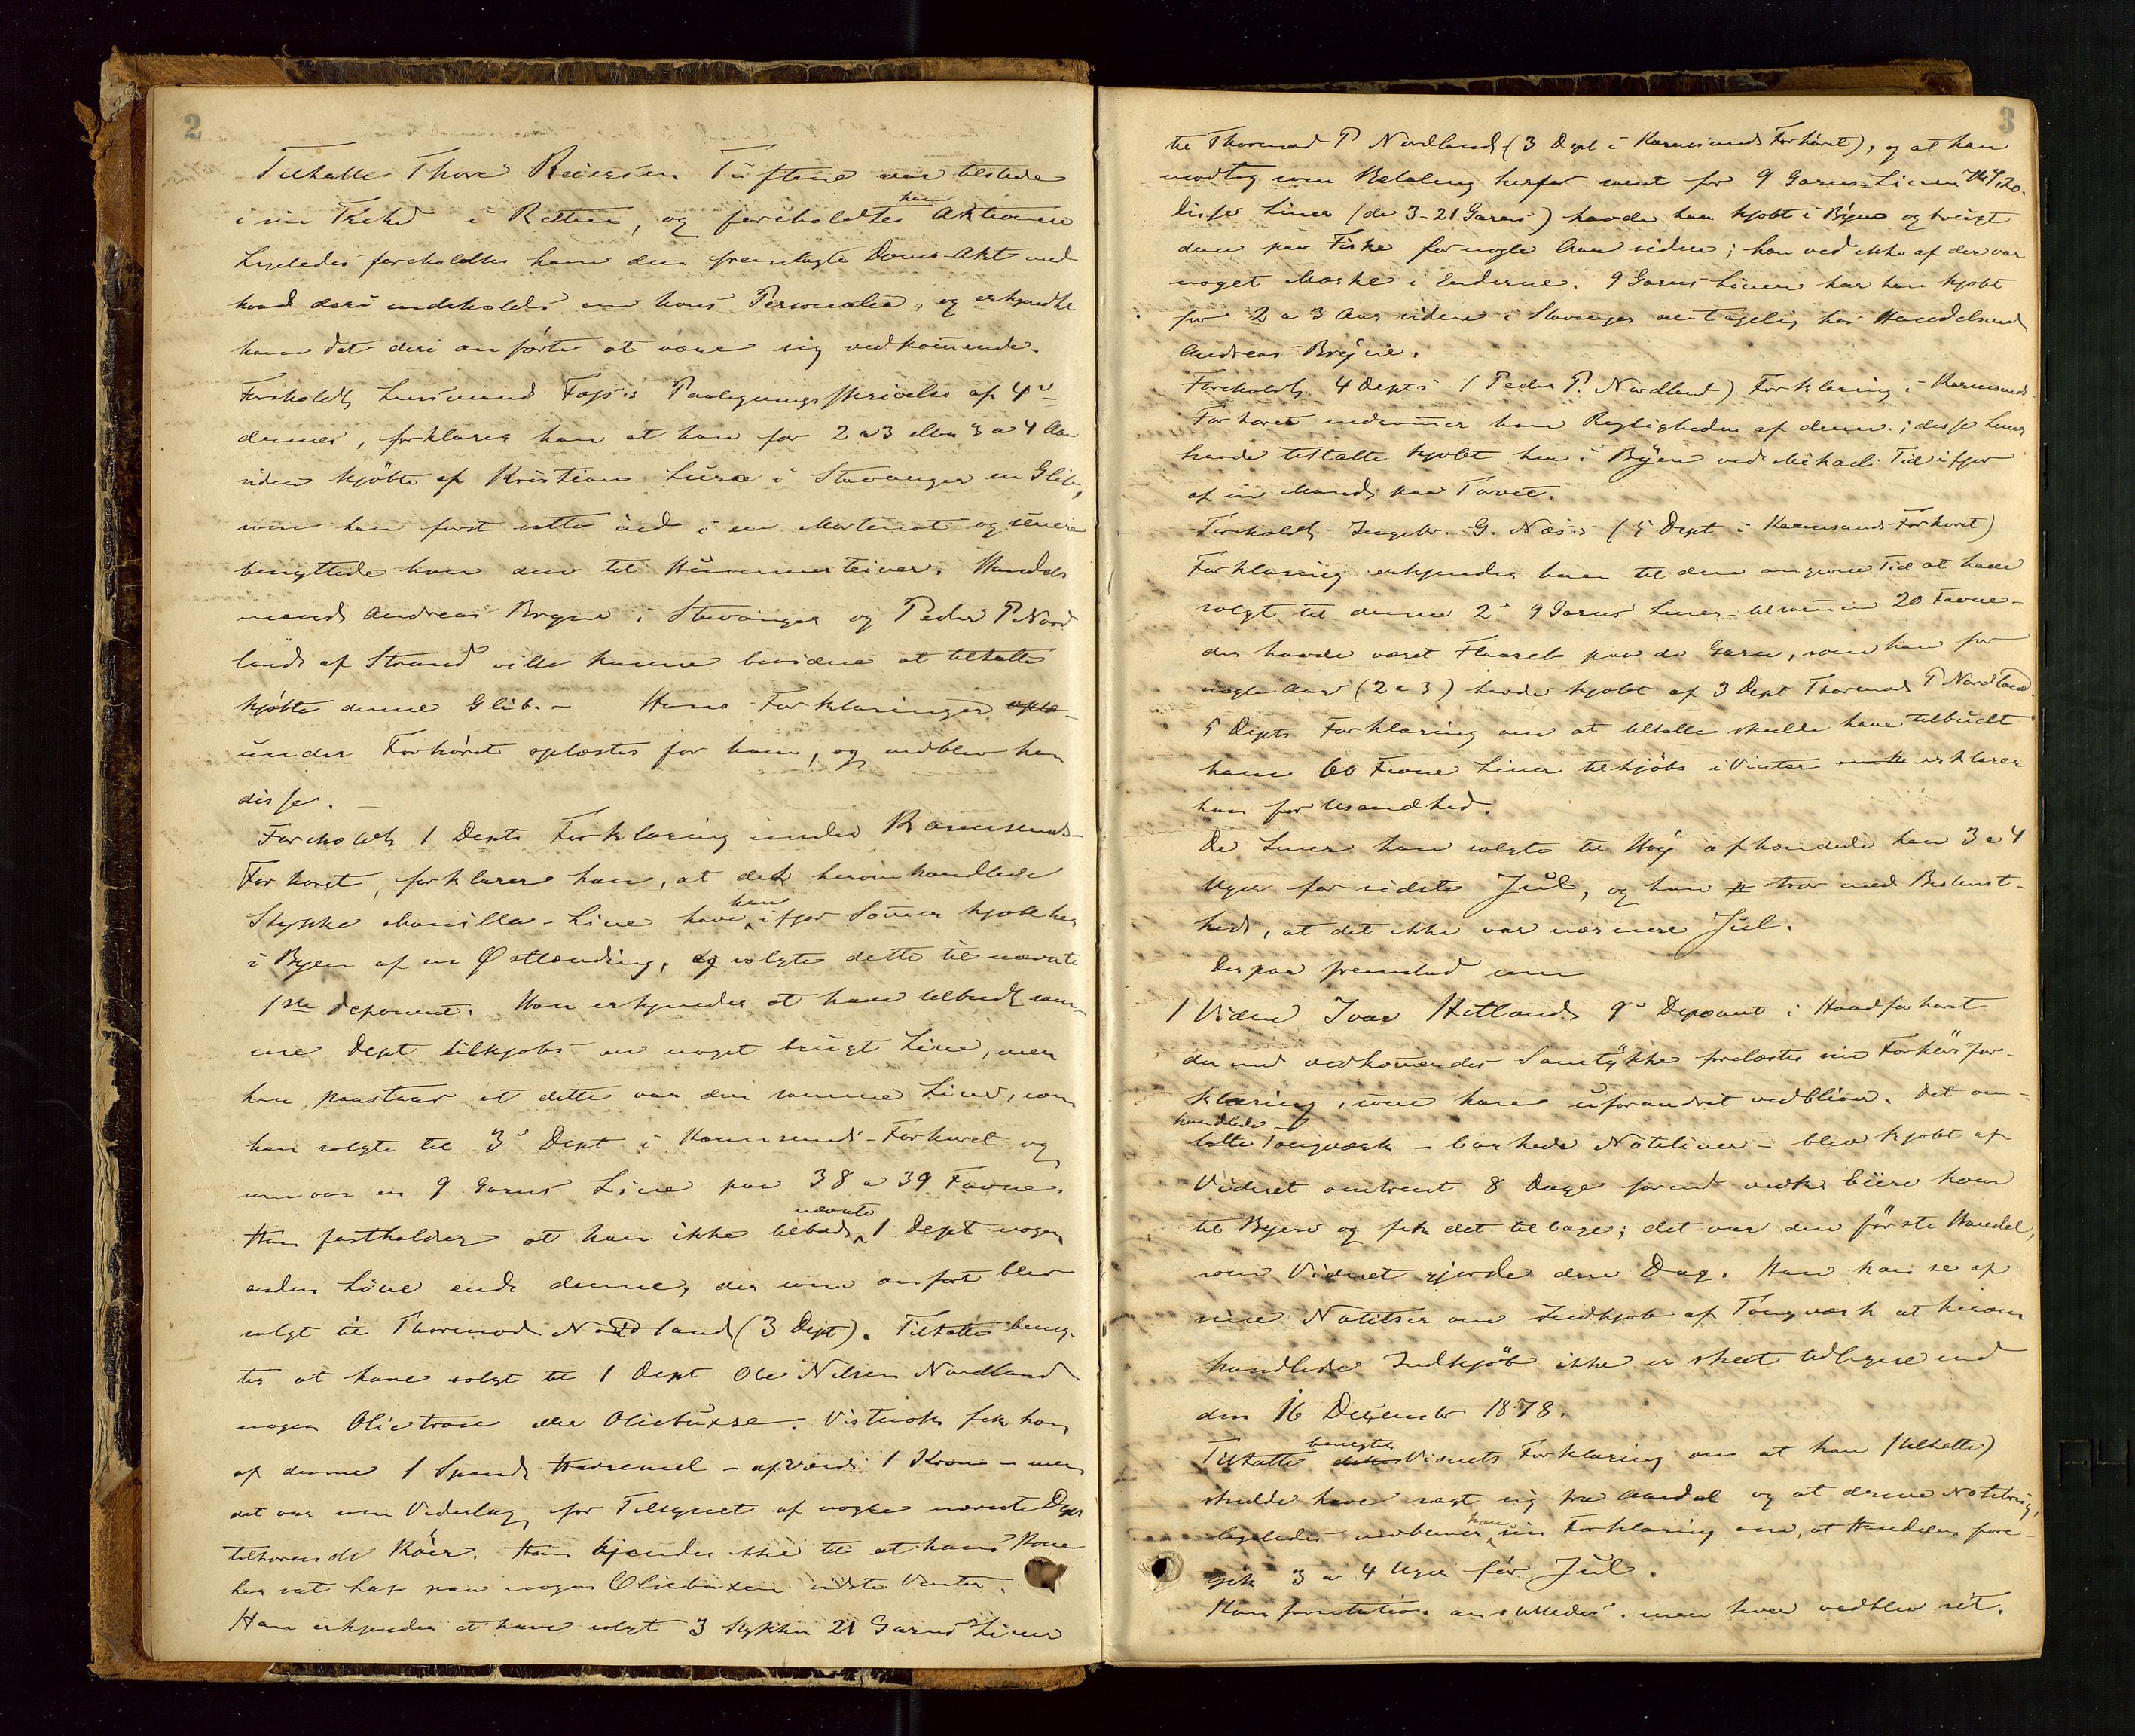 2
Tiltalte Thore Reiersen Tuftene var tilstede
i sin Frihed i Retten, og foreholdtes ham Aktionære
Ligeledes foreholdtes ham den fremlagte Doms-Akt med
hvad deri indeholdes om hans Personalia, og erkjendte
han det deri anførte at være sig vedkommende.
Foreholdt Lensmand Foss's Paategningsskrivelse af 4de
dennes, forklarer han at han for 2 a 3 eller 3 a 4 Aar
siden kjøbte af Kristian Lura i Stavanger en Glib,
som han først satte ind i en Mortenot og senere
benyttede han den til Hummerteiner. Handels
mand Andreas Bryne i Stavanger og Peder P Nord
land af Strand ville kunne bevidne at tiltalte
kjøbte denne Glib. – Hans Forklaringer oplæ-
under Forhøret oplæstes for ham, og vedblev han
disse. –
Foreholdt 1 Depts Forklaring under Karmsunds-
Forhøret, forklarer han, at det heromhandlede
Stykke Manilla-Line have han ifjor Sommer kjøbt her
i Byen af en Østlænding, og solgte dette til nævnte
1ste Deponent. Han erkjender at have tilbudt sam-
me Dept tilkjøbs en noget brugt Line, men
han paastaar at dette var den samme Line, som
han solgte til 3de Dept i Karmsunds-Forhøret og
som var en 9 Garns Line paa 38 a 39 Favne.
Han fastholder at han ikke tilbød nævnte 1 Dept nogen
anden Line end denne, der som anført blev
solgt til Thormod Nordland (3 Dept). Tiltalte benæg-
ter at have solgt til 1 Dept Ole Nilsen Nordland
nogen Olietrøie eller Oliebuxse. Vistnok fik han
af denne 1 Spand Havremel – af Værdi 1 Krone – men
det var som Vederlag for Tilsynet af nogle nævnte Dept
tilhørende Køer. Han kjender ikke til at hans Kone
har sat Lap paa nogen Oliebuxe sidste Vinter.
Han erkjender at have solgt 3 Stykker 21 Garns Liner
3
til Thormod P Nordland (3 Dept i Karmsunds Forhøret), og at han
modtog som Betaling herfor samt for 9 Garns-Linen
Disse Liner (de 3-21 Garns) havde han kjøbt i Byen og brugt
dem paa Fiske for nogle Aar siden; han ved ikke af der var
noget Mærke i Enderne. 9 Garns Linen har han kjøbt
for 2 a 3 Aar siden i Stavanger antagelig hos Handelsmand
Andreas Bryne.
Foreholdt 4 Depts (Peder P. Nordland) Forklaring i Karmsunds
Forhøret indrømmer han Rigtigheden af denne; disse Liner
havde tiltalte kjøbt her i Byen ved Mikaeli Tid ifjor
af en Mand paa Torvet.
Foreholdt Ingebr. G. Næs's (5 Dept i Karmsunds-Forhøret)
Forklaring erkjender han til den angivne Tid at have
solgt til denne 2de 9 Garns Liner – tilsammen 20 Favne –
der havde været Flaareb paa de Garn, som han for
nogle Aar (2 a 3) havde kjøbt af 3 Dept Thormod P Nordland.
5 Depts Forklaring om at tiltalte skulle have tilbudt
ham 60 Favne Liner tilkjøbs iVinter erklærer
han for Usandhed.
De Liner han solgte til Høy afhændede han 3 a 4
Uger før sidste Jul, og han tror med Bestemt-
hed, at det ikke var nærmere Jul.
Derpaa fremstod som
1 Vidne Ivar Hetland 9de Deponent i Haadforhøret
der med vedkommendes Samtykke forelæstes sin Forhørsfor-
klaring, som han uforandret vedbliver. Det om-
handlede
talte Tougværk – barkede Notliner – blev kjøbt af
Vidnet omtrent 8 Dage førend vedk. Eiere kom
til Byen og fik det tilbage; det var den første Handel,
som Vidnet gjorde den Dag. Han kan se af
sine Notitser om Indkjøb af Tougværk at herom
handlede Indkjøb ikke er skeet tidligere end
den 16 December 1878.
Tiltalte benegter Vidnets Forklaring om at han (tiltalte)
skulde have sagt sig fra Aardal og at drive Notebrug,
ligeledes vedbliver han sin Forklaring om, at Handelen fore-
gik 3 a 4 Uger før Jul.
Konfrontation anstilledes, men hver vedblev sit.